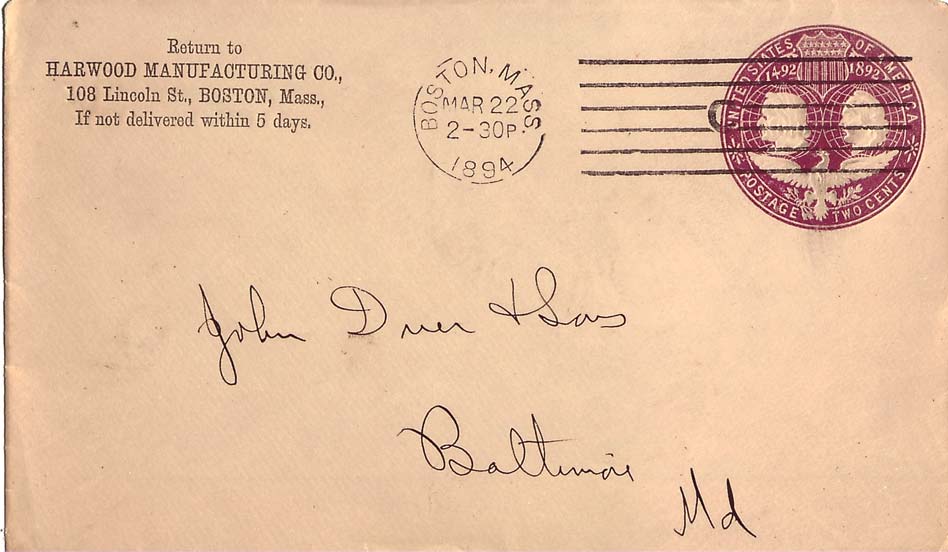 Return to
HARWOOD MANUFACTURING CO.,
108 Lincoln St., BOSTON, Mass.,
If not delivered within 5 days.
BOSTON, MASS.
MAR 22
2-30P.
1894
UNITED STATES OF AMERICA
1492 1892
POSTAGE TWO CENTS
John Duer & Sons
Baltimore
Md